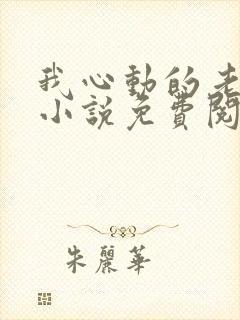 我心動的老
小說免費閱
朱麗華